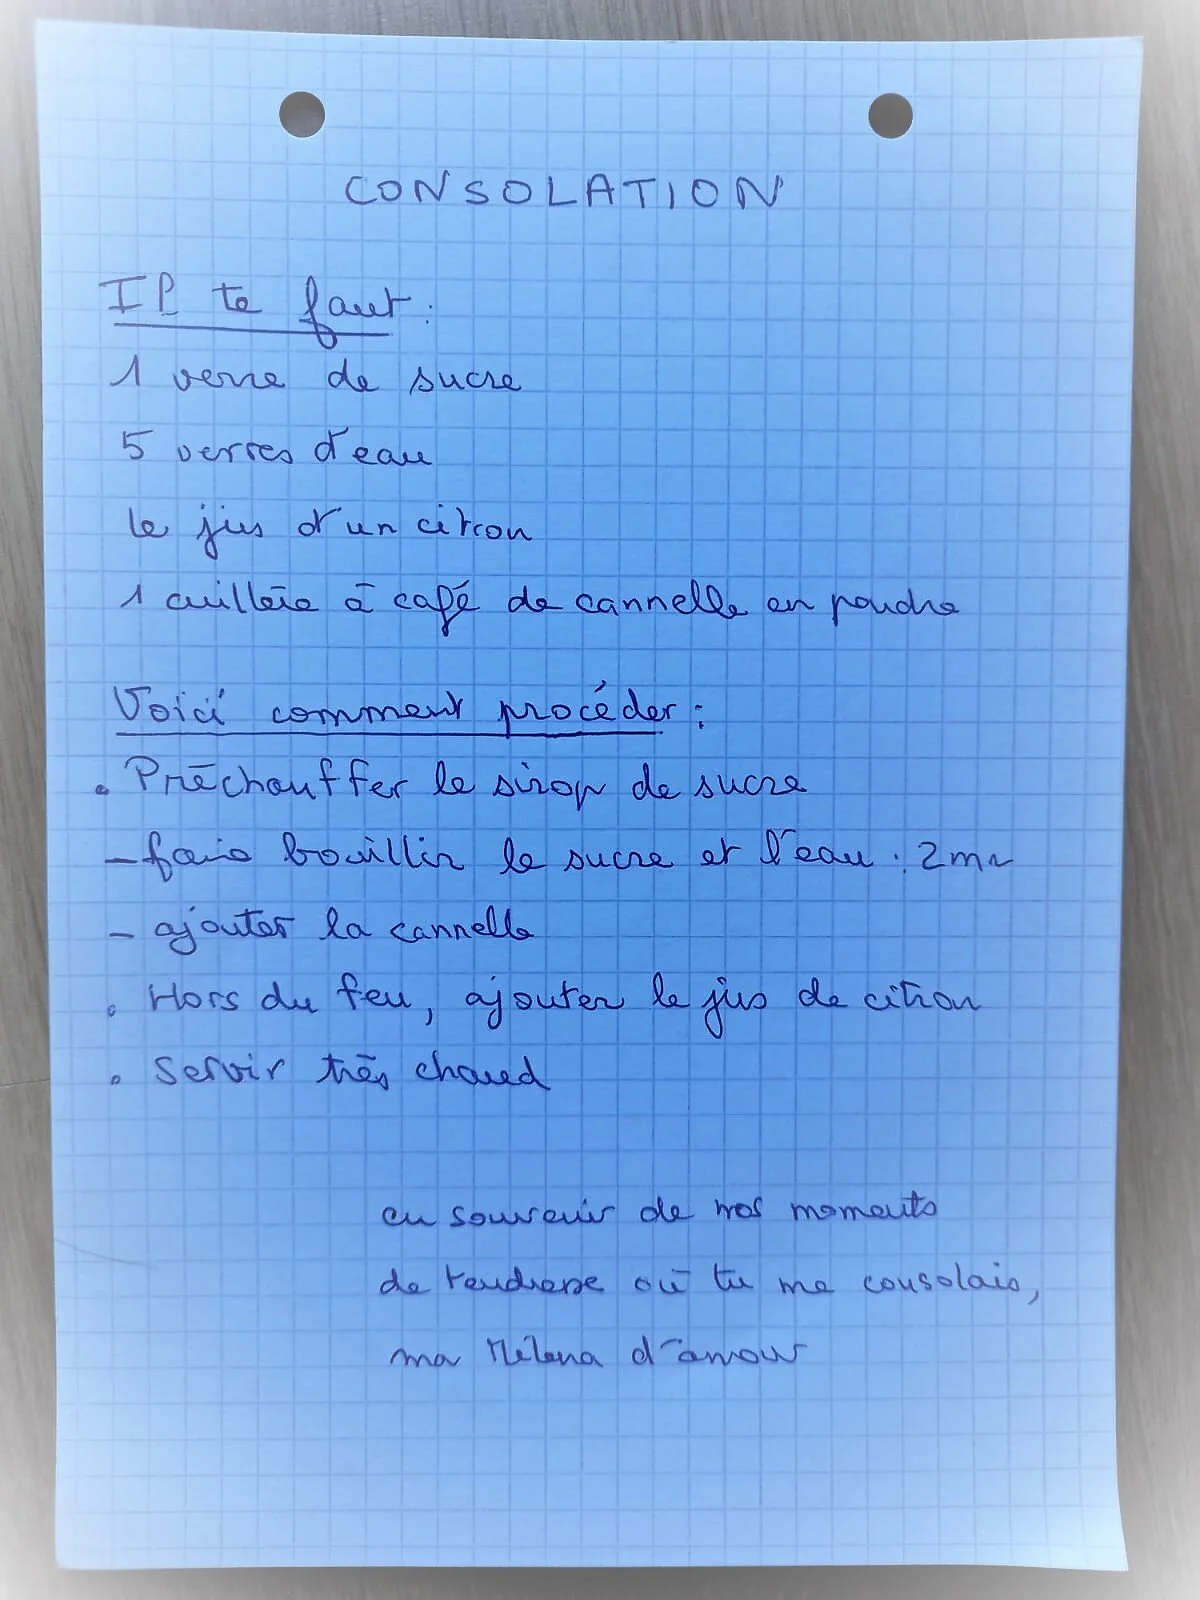 CONSOLATION
Il te faut :
1 verre de sucre
5 verres d'eau
le jus d'un citron
1 cuillère à café de cannelle en poudre
Voici comment procéder :
• Préchauffer le sirop de sucre
- faire bouillir le sucre et l'eau : 2mn
- ajouter la cannelle
• Hors du feu, ajouter le jus de citron
• Servir très chaud
en souvenir de nos moments
de tendresse où tu me consolais,
ma Mélena d'amour